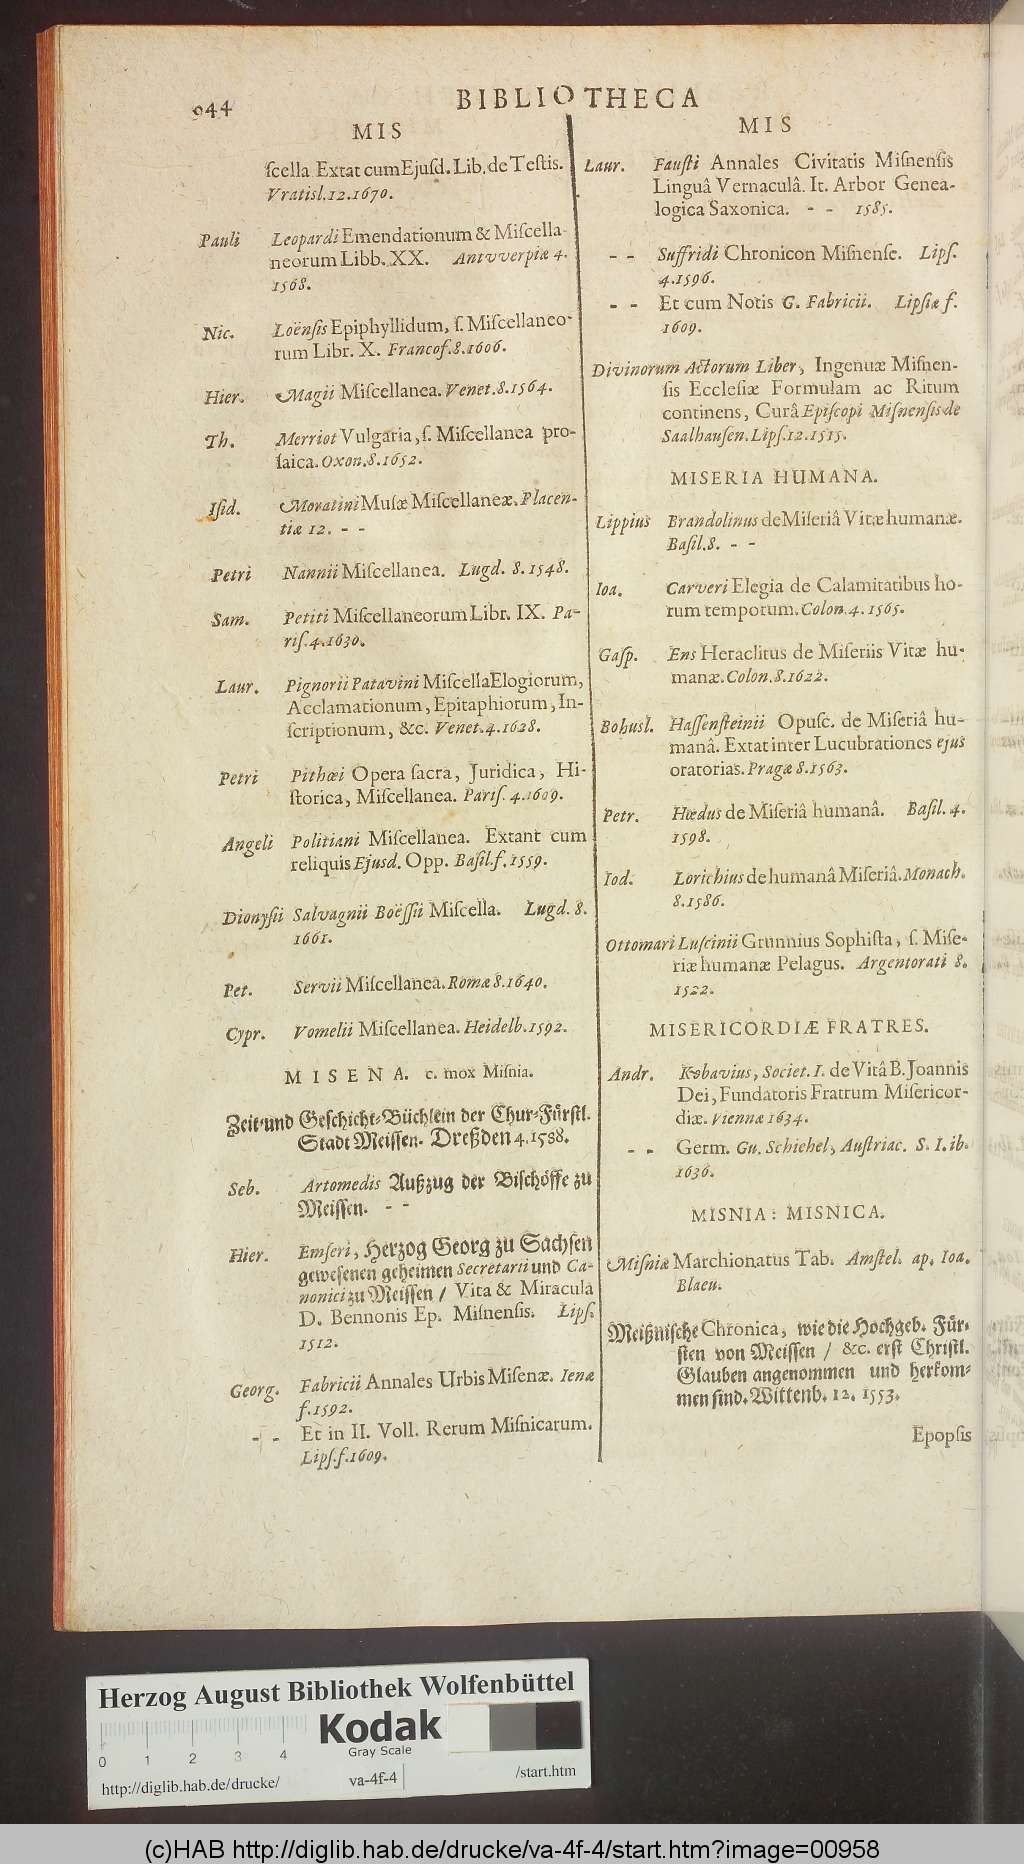 944
BIBLIOTHECA
MIS
ſcella Extat cum Ejuſd. Lib. de Teſtis.
Vratisl. 12. 1670.
Pauli Leopardi Emendationum & Miſcella-
neorum Libb. XX. Antvverpiæ 4.
1568.
Nic. Loënſis Epiphyllidum, ſ. Miſcellaneo-
rum Libr. X. Francof. 8. 1606.
Hier. Magii Miſcellanea. Venet. 8. 1564.
Th. Merriot Vulgaria, ſ. Miſcellanea pro-
ſaica. Oxon. 8. 1652.
Iſid. Moratini Muſæ Miſcellaneæ. Placen-
tiæ 12. - -
Petri Nannii Miſcellanea. Lugd. 8. 1548.
Sam. Petiti Miſcellaneorum Libr. IX. Pa-
riſ. 4. 1630.
Laur. Pignorii Patavini Miſcella Elogiorum,
Acclamationum, Epitaphiorum, In-
ſcriptionum, &c. Venet. 4. 1628.
Petri Pithœi Opera ſacra, Juridica, Hi-
ſtorica, Miſcellanea. Pariſ. 4. 1609.
Angeli Politiani Miſcellanea. Extant cum
reliquis Ejusd. Opp. Baſil. f. 1559.
Dionyſii Salvagnii Boëſſii Miſcella. Lugd. 8.
1661.
Pet. Servii Miſcellanea. Romæ 8. 1640.
Cypr. Vomelii Miſcellanea. Heidelb. 1592.
MISENA. c. mox Miſnia.
Zeit-und Geſchicht-Büchlein der Chur-Fürſtl.
Stadt Meiſſen. Dreßden 4. 1588.
Seb. Artomedis Außzug der Biſchöffe zu
Meiſſen. - -
Hier. Emſeri, Herzog Georg zu Sachſen
geweſenen geheimen Secretarii und Ca-
nonici zu Meiſſen / Vita & Miracula
D. Bennonis Ep. Miſnenſis. Lipſ.
1512.
Georg. Fabricii Annales Urbis Miſenæ. Ienæ
f. 1592.
- - Et in II. Voll. Rerum Miſnicarum.
Lipſ. f. 1609.
MIS
Laur. Fauſti Annales Civitatis Miſnenſis
Linguâ Vernaculâ. It. Arbor Genea-
logica Saxonica. - - 1585.
- - Suffridi Chronicon Miſnenſe. Lipſ.
4. 1596.
- - Et cum Notis G. Fabricii. Lipſiæ f.
1609.
Divinorum Actorum Liber, Ingenuæ Miſnen-
ſis Eccleſiæ Formulam ac Ritum
continens, Curâ Epiſcopi Miſnenſis de
Saalhauſen. Lipſ. 12. 1515.
MISERIA HUMANA.
Lippius Brandolinus de Miſeriâ Vitæ humanæ.
Baſil. 8. - -
Ioa. Carveri Elegia de Calamitatibus ho-
rum temporum. Colon. 4. 1565.
Gaſp. Ens Heraclitus de Miſeriis Vitæ hu-
manæ. Colon. 8. 1622.
Bohusl. Haſſenſteinii Opuſc. de Miſeriâ hu-
manâ. Extat inter Lucubrationes ejus
oratorias. Pragæ 8. 1563.
Petr. Hœdus de Miſeriâ humanâ. Baſil. 4.
1598.
Iod. Lorichius de humanâ Miſeriâ. Monach.
8. 1586.
Ottomari Luſcinii Grunnius Sophiſta, ſ. Miſe-
riæ humanæ Pelagus. Argentorati 8.
1522.
MISERICORDIÆ FRATRES.
Andr. Kobavius, Societ. I. de Vitâ B. Joannis
Dei, Fundatoris Fratrum Miſericor-
diæ. Viennæ 1634.
- - Germ. Gu. Schiehel, Auſtriac. S. I. ib.
1636.
MISNIA: MISNICA.
Miſniæ Marchionatus Tab. Amſtel. ap. Ioa.
Blaeu.
Meißniſche Chronica, wie die Hochgeb. Für-
ſten von Meiſſen / &c. erſt Chriſtl.
Glauben angenommen und herkom-
men ſind. Wittenb. 12. 1553.
Epopſis
Herzog August Bibliothek Wolfenbüttel
Kodak
Gray Scale
0 1 2 3 4
http://diglib.hab.de/drucke/ va-4f-4 /start.htm
(c)HAB http://diglib.hab.de/drucke/va-4f-4/start.htm?image=00958